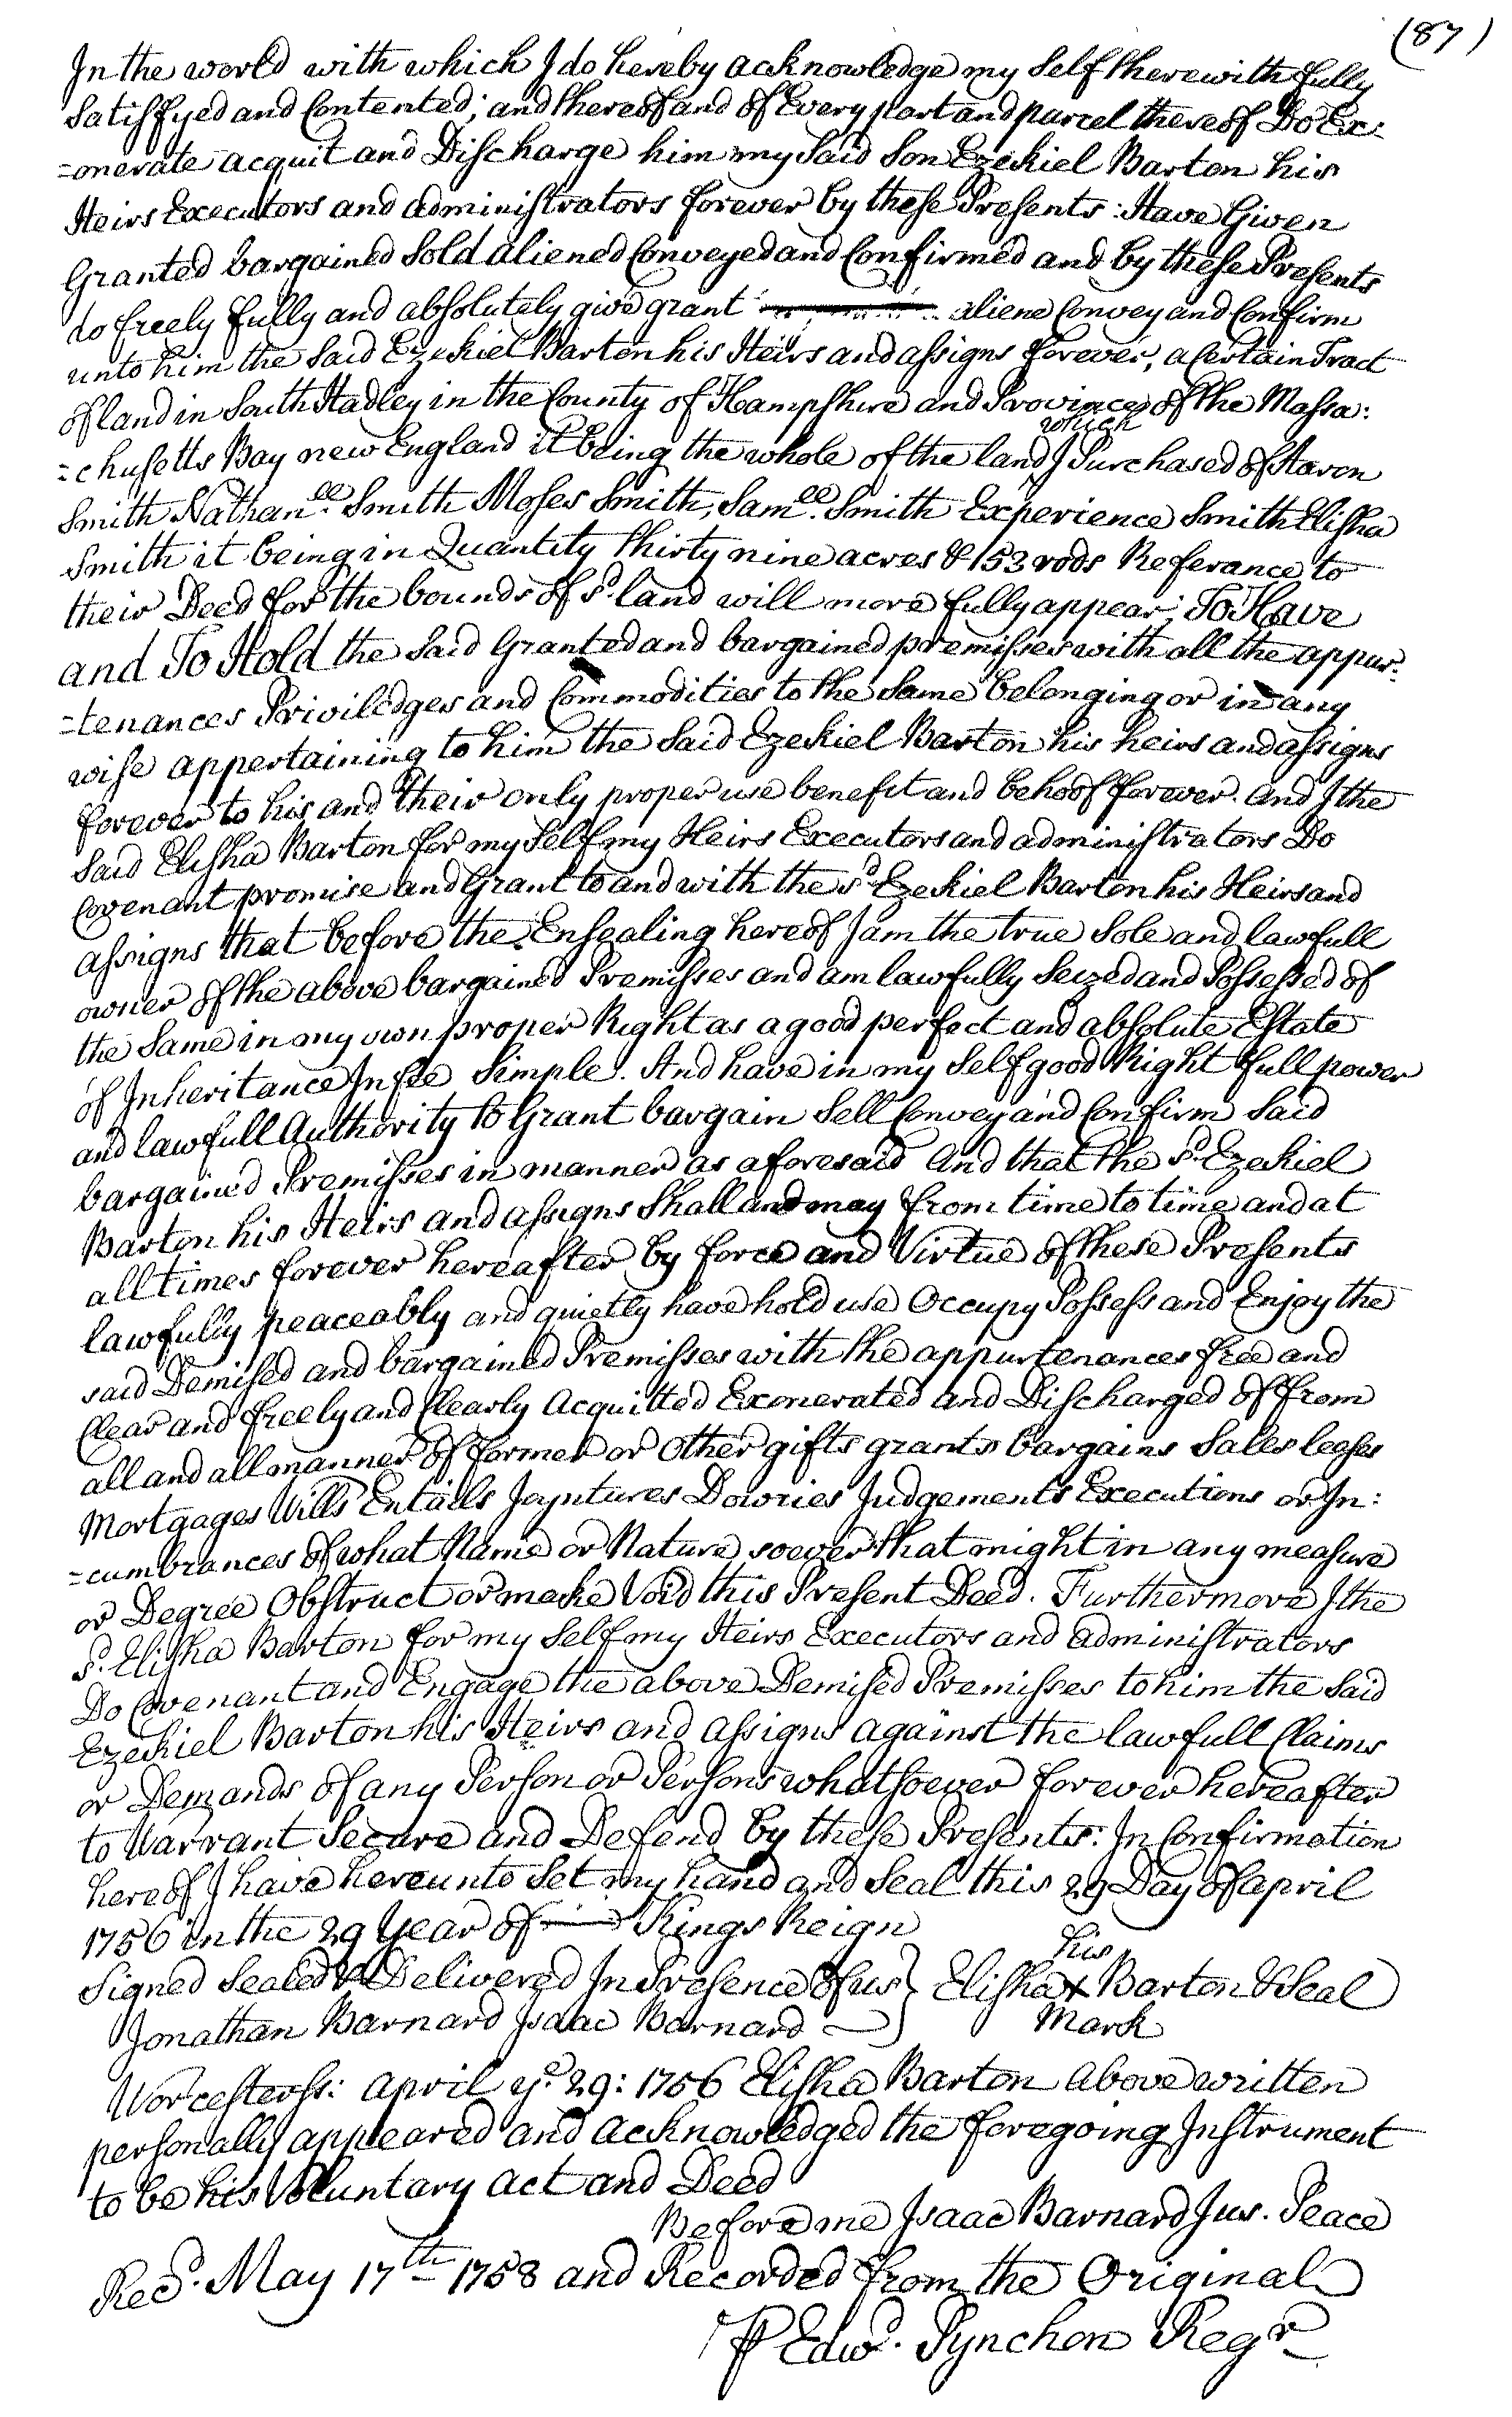 (87)
In the world with which I do hereby acknowledge my Self therewith fully
Satisfyed and Contented; and thereof and of Every part and parcel thereof Do Ex:
=onerate acquit and Discharge him my Said Son Ezekiel Barton his
Heirs Executors and administrators forever by these Presents: Have Given
Granted bargained Sold aliened Conveyed and Confirmed and by these Presents
do freely fully and absolutely give grant aliene Convey and Confirm
unto him the Said Ezekiel Barton his Heirs and assigns forever, a Certain Tract
of land in South Hadley in the County of Hampshire and Province of the Massa:
which
=chusetts Bay new England it being the whole of the land I Purchased of Aaron
Smith Nathan.ll Smith Moses Smith, Sam.ll Smith Experience Smith Elisha
Smith it being in Quantity thirty nine acres & 153 rods Referance to
their Deed for the bounds of s.d land will more fully appear; To Have
and To Hold the Said Granted and bargained premisses with all the appur:
=tenances Priviledges and Commodities to the Same belonging or in any
wise appertaining to him the Said Ezekiel Barton his heirs and assigns
forever to his and their only proper use benefit and behoof forever. And I the
Said Elisha Barton for my Self my Heirs Executors and administrators Do
Covenant promise and Grant to and with the s.d Ezekiel Barton his Heirs and
assigns that before the Ensealing hereof I am the true Sole and lawfull
owner of the above bargained Premisses and am lawfully Seized and Possessed of
the Same in my own proper Right as a good perfect and absolute Estate
of Inheritance In fee Simple. And have in my Self good Right full power
and lawfull Authority to Grant bargain Sell Convey and Confirm Said
bargained Premisses in manner as aforesaid And that the s.d Ezekiel
Barton his Heirs and assigns Shall and may from time to time and at
all times forever hereafter by force and Virtue of these Presents
lawfully peaceably and quietly have hold use Occupy Possess and Enjoy the
said Demised and bargained Premisses with the appurtenances free and
Clear and freely and Clearly Acquitted Exonerated and Discharged of from
all and all manner of former or other gifts grants bargains Sales leases
Mortgages Wills Entails Joyntures Dowries Judgements Executions or In:
=cumbrances of what Name or Nature soever that might in any measure
or Degree Obstruct or make Void this Present Deed. Furthermore I the
s.d Elisha Barton for my Self my Heirs Executors and administrators
Do Covenant and Engage the above Demised Premisses to him the Said
Ezekiel Barton his Heirs and assigns against the lawfull Claims
or Demands of any Person or Persons whatsoever forever hereafter
to Warrant Secure and Defend by these Presents: In Confirmation
hereof I have hereunto Set my hand and Seal this 29 Day of april
1756 in the 29 Year of Kings Reign
his
Signed Sealed & Delivered In Presence of us } Elisha X Barton & Seal
Jonathan Barnard Isaac Barnard Mark
Worcester ss: april y.e 29: 1756 Elisha Barton above written
personally appeared and acknowledged the foregoing Instrument
to be his Voluntary act and Deed
Before me Isaac Barnard Jus. Peace
Rec.d May 17th 1758 and Recorded from the Original
P Edw.d Pynchon Reg.r